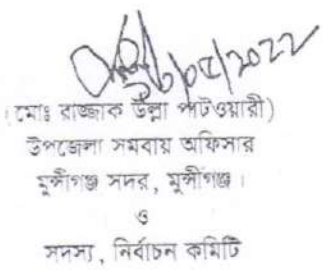 ১৮/০৫/2022
(মোঃ রাজ্জাক উল্লা পাটওয়ারী)
উপজেলা সমবায় অফিসার
মুন্সীগঞ্জ সদর, মুন্সীগঞ্জ।
ও
সদস্য, নির্বাচন কমিটি